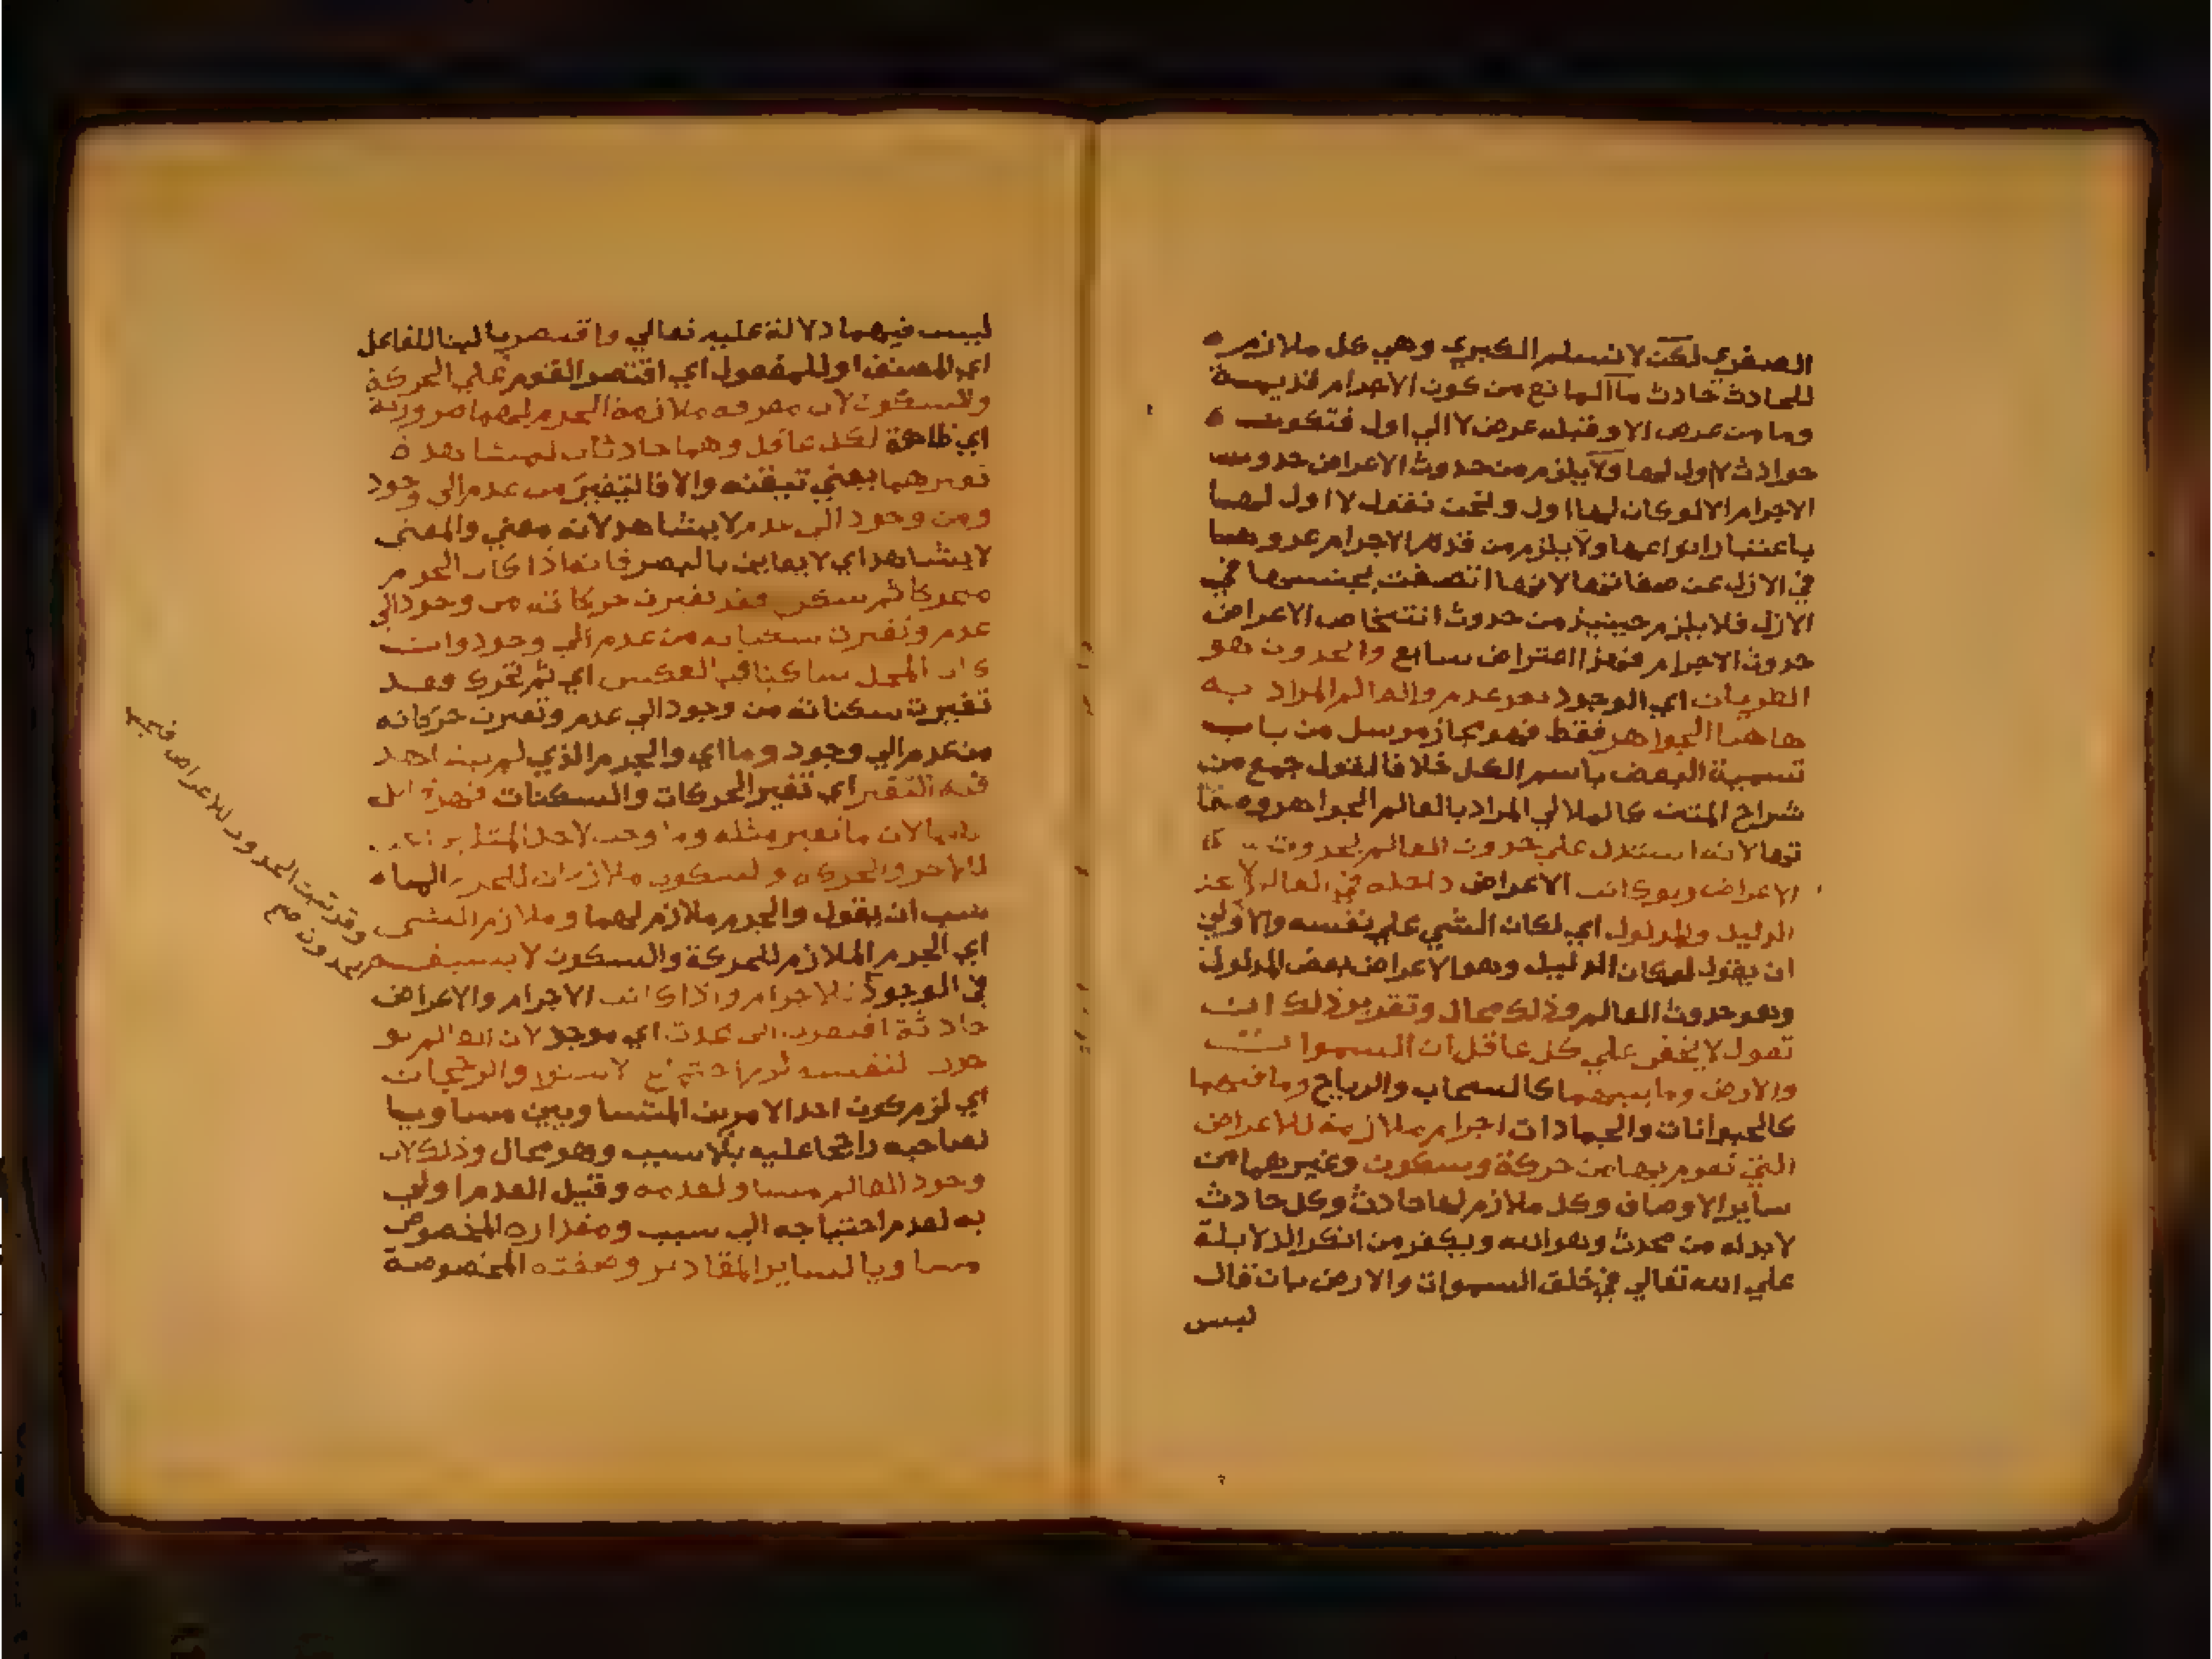 الصغري لكن لانسلم الكبري وهي كل ملازم
للحادث حادث ما المانع من كون الاجرام قديمة
وما من عرض الا وقبله عرض لا الي اول فتكون
حوادث لا اول لها ولا يلزم من حدوث الاعراض حدوث
الاجرام الا لو كان لها اول ونحن نقول لا اول لها
باعتبار انواعها ولا يلزم من قدم الاجرام عروها
في الازل عن صفاتها لانها اتصفت بجنسها في
الازل فلا يلزم حينيذ من حدوث اشخاص الاعراض
حدوث الاجرام فهذا اعتراض سابع والحدوث هو
الطريان اي الوجود بعد عدم والعالم المراد به
هاهنا الجواهر فقط فهو مجاز مرسل من باب
تسمية البعض باسم الكل خلافا لقول جمع من
شراح المتن كالملالي المراد بالعالم الجواهر وصفا
تها لانه استدل علي حدوث العالم بحدوث
الاعراض ولو كانت الاعراض داخله في العالم لا تحد
الدليل والمدلول اي لكان الشي علي نفسه والاولي
ان يقول لكان الدليل وهو الاعراض بعض المدلول
وهو حدوث العالم وذلك محال وتقرير ذلك ان
تقول لا يخفي علي كل عاقل ان السموات
والارض وما بينهما كالسحاب والرياح وما فيهما
كالحيوانات والجمادات اجرام ملازمة للاعراض
التي تقوم بها من حركة وسكون وغيرهما من
ساير الاوصاف وكل ملازم لها حادث وكل حادث
لا بد له من محدث وهو الله ويكفر من انكر الدلالة
علي الله تعالي في خلق السموات والارض بان قال
ليس
ليس فيهما دلالة عليه تعالي واقتصر بالبنا للفاعل
اي المصنف او للمفعول اي اقتصر القوم علي الحركة
والسكون لان معرفه ملازمة الجرم لهما ضرورية
اي ظاهرة لكل عاقل وهما حادثان لمشاهدة
تغيرهما بمعني تيقنه والا فالتغير من عدم الي وجود
ومن وجود الي عدم لا يشاهد لانه معني والمعني
لا يشاهد اي لا يعاين بالبصر فانه اذا كان الجرم
متحركا ثم سكن فقد تغيرت حركاته من وجود الي
عدم وتغيرت سكناته من عدم الي وجود وان
كان المحل ساكنا فبالعكس اي ثم تحرك فقد
تغيرت سكناته من وجود الي عدم وتغيرت حركاته
من عدم الي وجود وما اي والجرم الذي لم يشاهد
فيه التغير اي تغير الحركات والسكنات فهو قابل
لهما لان ما تغير مثله وما وجب لاحد المثلين
للاخر والحركه والسكون ملازمان للجرم
ان يقول والجرم ملازم لهما وملازم الشي
اي الجرم الملازم للحركة والسكون لا يسبقـ
في الوجود للاجرام واذا كانت الاجرام والاعراض
حادثة افتقرت الي محدث اي موجد لان العالم لو
حدث لنفسه لزم اجتماع الاستوا والرجحان
اي لزم كون احد الامرين المتساويين مساويا
لصاحبه راجحا عليه بلا سبب وهو محال وذلك لان
وجود العالم مساو لعدمه وقيل العدم اولي
به لعدم احتياجه الي سبب ومقداره المخصوص
مساويا لساير المقادير وصفته المخصوصة
وقد ثبت الحدوث للاعراض فيجب
حدوث صح